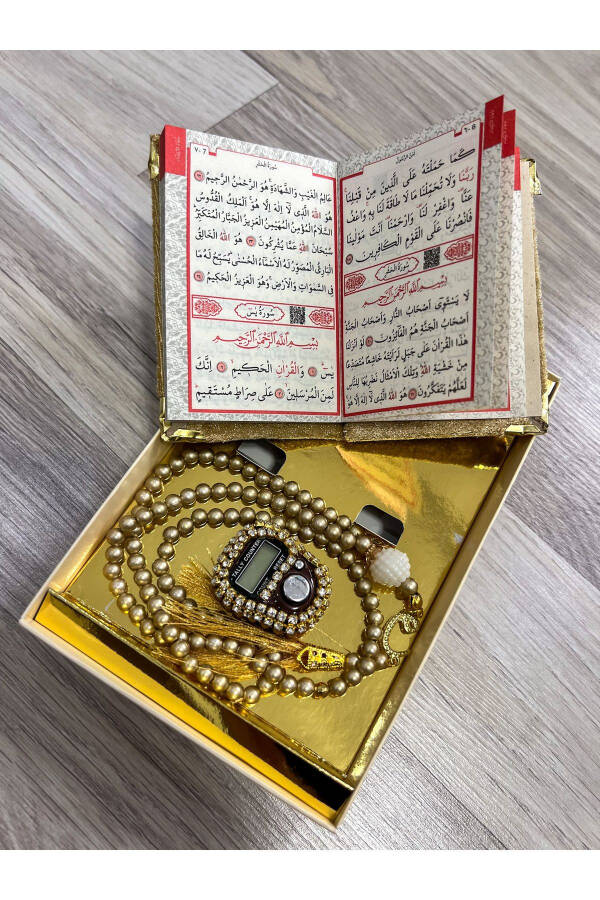 ٦-6
آمَنَ الرَّسُولُ
كَمَا حَمَلْتَهُ عَلَى الَّذِينَ مِنْ قَبْلِنَا
رَبَّنَا وَلَا تُحَمِّلْنَا مَا لَا طَاقَةَ لَنَا بِهِ وَاعْفُ
عَنَّا وَاغْفِرْ لَنَا وَارْحَمْنَا أَنْتَ مَوْلَينَا
فَانْصُرْنَا عَلَى الْقَوْمِ الْكَافِرِينَ
سُورَةُ الْحَشْرِ
بِسْمِ اللّٰهِ الرَّحْمٰنِ الرَّحِيمِ
لَا يَسْتَوِي أَصْحَابُ النَّارِ وَأَصْحَابُ الْجَنَّةِ
أَصْحَابُ الْجَنَّةِ هُمُ الْفَائِزُونَ لَوْ أَنْزَلْنَا
هٰذَا الْقُرْآنَ عَلَى جَبَلٍ لَرَأَيْتَهُ خَاشِعًا مُتَصَدِّعًا
مِنْ خَشْيَةِ اللّٰهِ وَتِلْكَ الْأَمْثَالُ نَضْرِبُهَا لِلنَّاسِ
لَعَلَّهُمْ يَتَفَكَّرُونَ هُوَ اللّٰهُ الَّذِي لَا إِلٰهَ إِلَّا هُوَ
سُورَةُ الْحَشْرِ
٧-7
عَالِمُ الْغَيْبِ وَالشَّهَادَةِ هُوَ الرَّحْمٰنُ الرَّحِيمُ ٢٢
هُوَ اللّٰهُ الَّذِي لَا إِلٰهَ إِلَّا هُوَ الْمَلِكُ الْقُدُّوسُ
السَّلَامُ الْمُؤْمِنُ الْمُهَيْمِنُ الْعَزِيزُ الْجَبَّارُ الْمُتَكَبِّرُ
سُبْحَانَ اللّٰهِ عَمَّا يُشْرِكُونَ ٢٣ هُوَ اللّٰهُ الْخَالِقُ
الْبَارِئُ الْمُصَوِّرُ لَهُ الْأَسْمَاءُ الْحُسْنَى يُسَبِّحُ لَهُ مَا
فِي السَّمٰوَاتِ وَالْأَرْضِ وَهُوَ الْعَزِيزُ الْحَكِيمُ ٢٤
سُورَةُ يٰسٓ
بِسْمِ اللّٰهِ الرَّحْمٰنِ الرَّحِيمِ
يٰسٓ ١ وَالْقُرْاٰنِ الْحَكِيمِ ٢ إِنَّكَ
لَمِنَ الْمُرْسَلِينَ ٣ عَلَى صِرَاطٍ مُسْتَقِيمٍ
TALLY COUNTER
RESET